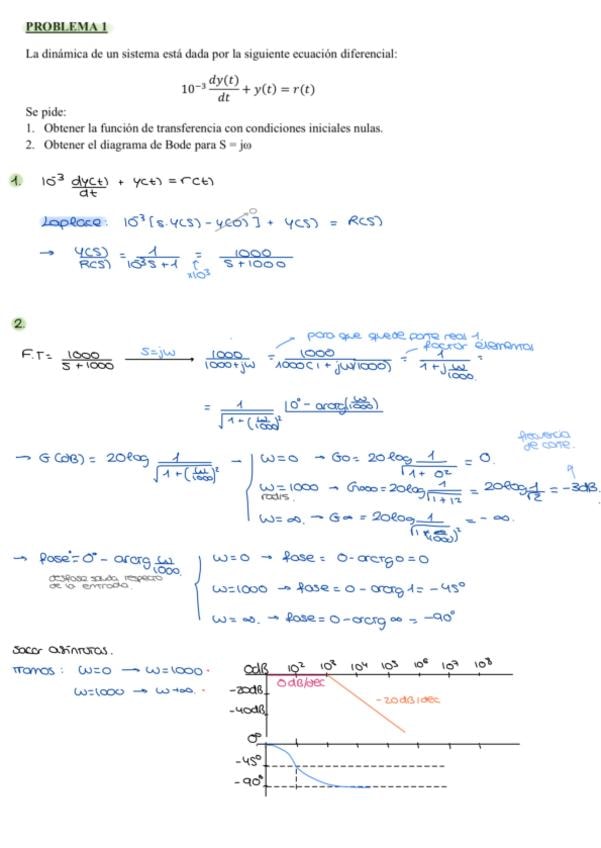 PROBLEMA 1
La dinámica de un sistema está dada por la siguiente ecuación diferencial:
10⁻³ dy(t)/dt + y(t) = r(t)
Se pide:
1. Obtener la función de transferencia con condiciones iniciales nulas.
2. Obtener el diagrama de Bode para S = jω
1. 10⁻³ dy(t)/dt + y(t) = r(t)
Laplace: 10⁻³ [s·Y(s) - y(0)⁰] + Y(s) = R(s)
→ Y(s)/R(s) = 1/(10⁻³s+1) = 1000/(s+1000)
↑ x10³
2.
para que quede parte real 1.
factor elementos
F.T = 1000/(s+1000) s=jω → 1000/(1000+jω) = 1000/(1000(1+jω/1000)) = 1/(1+j ω/1000) =
= 1/√(1-(ω/1000)²) |0° - arctg(ω/1000)
frecuencia de corte.
→ G(dB) = 20log 1/√(1+(ω/1000)²) → ω=0 → G0 = 20log 1/√(1+0²) = 0.
ω=1000 rad/s → G1000 = 20log 1/√(1+1²) = 20log 1/√2 = -3dB.
ω=∞ → G∞ = 20log 1/√(1+(∞/1000)²) = -∞.
→ fase = 0° - arctg ω/1000. ω=0 → fase = 0-arctg 0 = 0
desfase salida respecto de la entrada.
ω=1000 → fase = 0-arctg 1 = -45°
ω=∞. → fase = 0-arctg ∞ = -90°
sacar asíntotas.
tramos: ω=0 → ω=1000·
ω=1000 → ω→∞.·
0dB 10² 10³ 10⁴ 10⁵ 10⁶ 10⁷ 10⁸
0dB/dec
-20dB
-20dB/dec
-40dB
0°
-45°
-90°